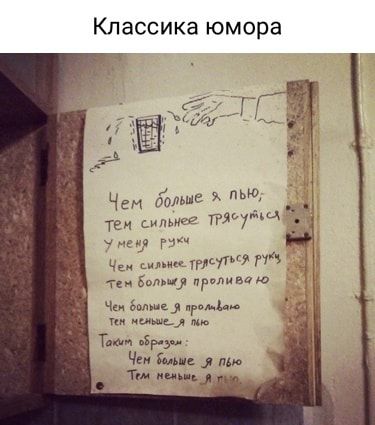 Классика юмора
Чем больше я пью,
тем сильнее трясуться
у меня руки
Чем сильнее трясуться руки,
тем больша я проливаю
Чем больше я проливаю
тем меньше я пью
Таким образом:
Чем больше я пью
Тем меньше я пью